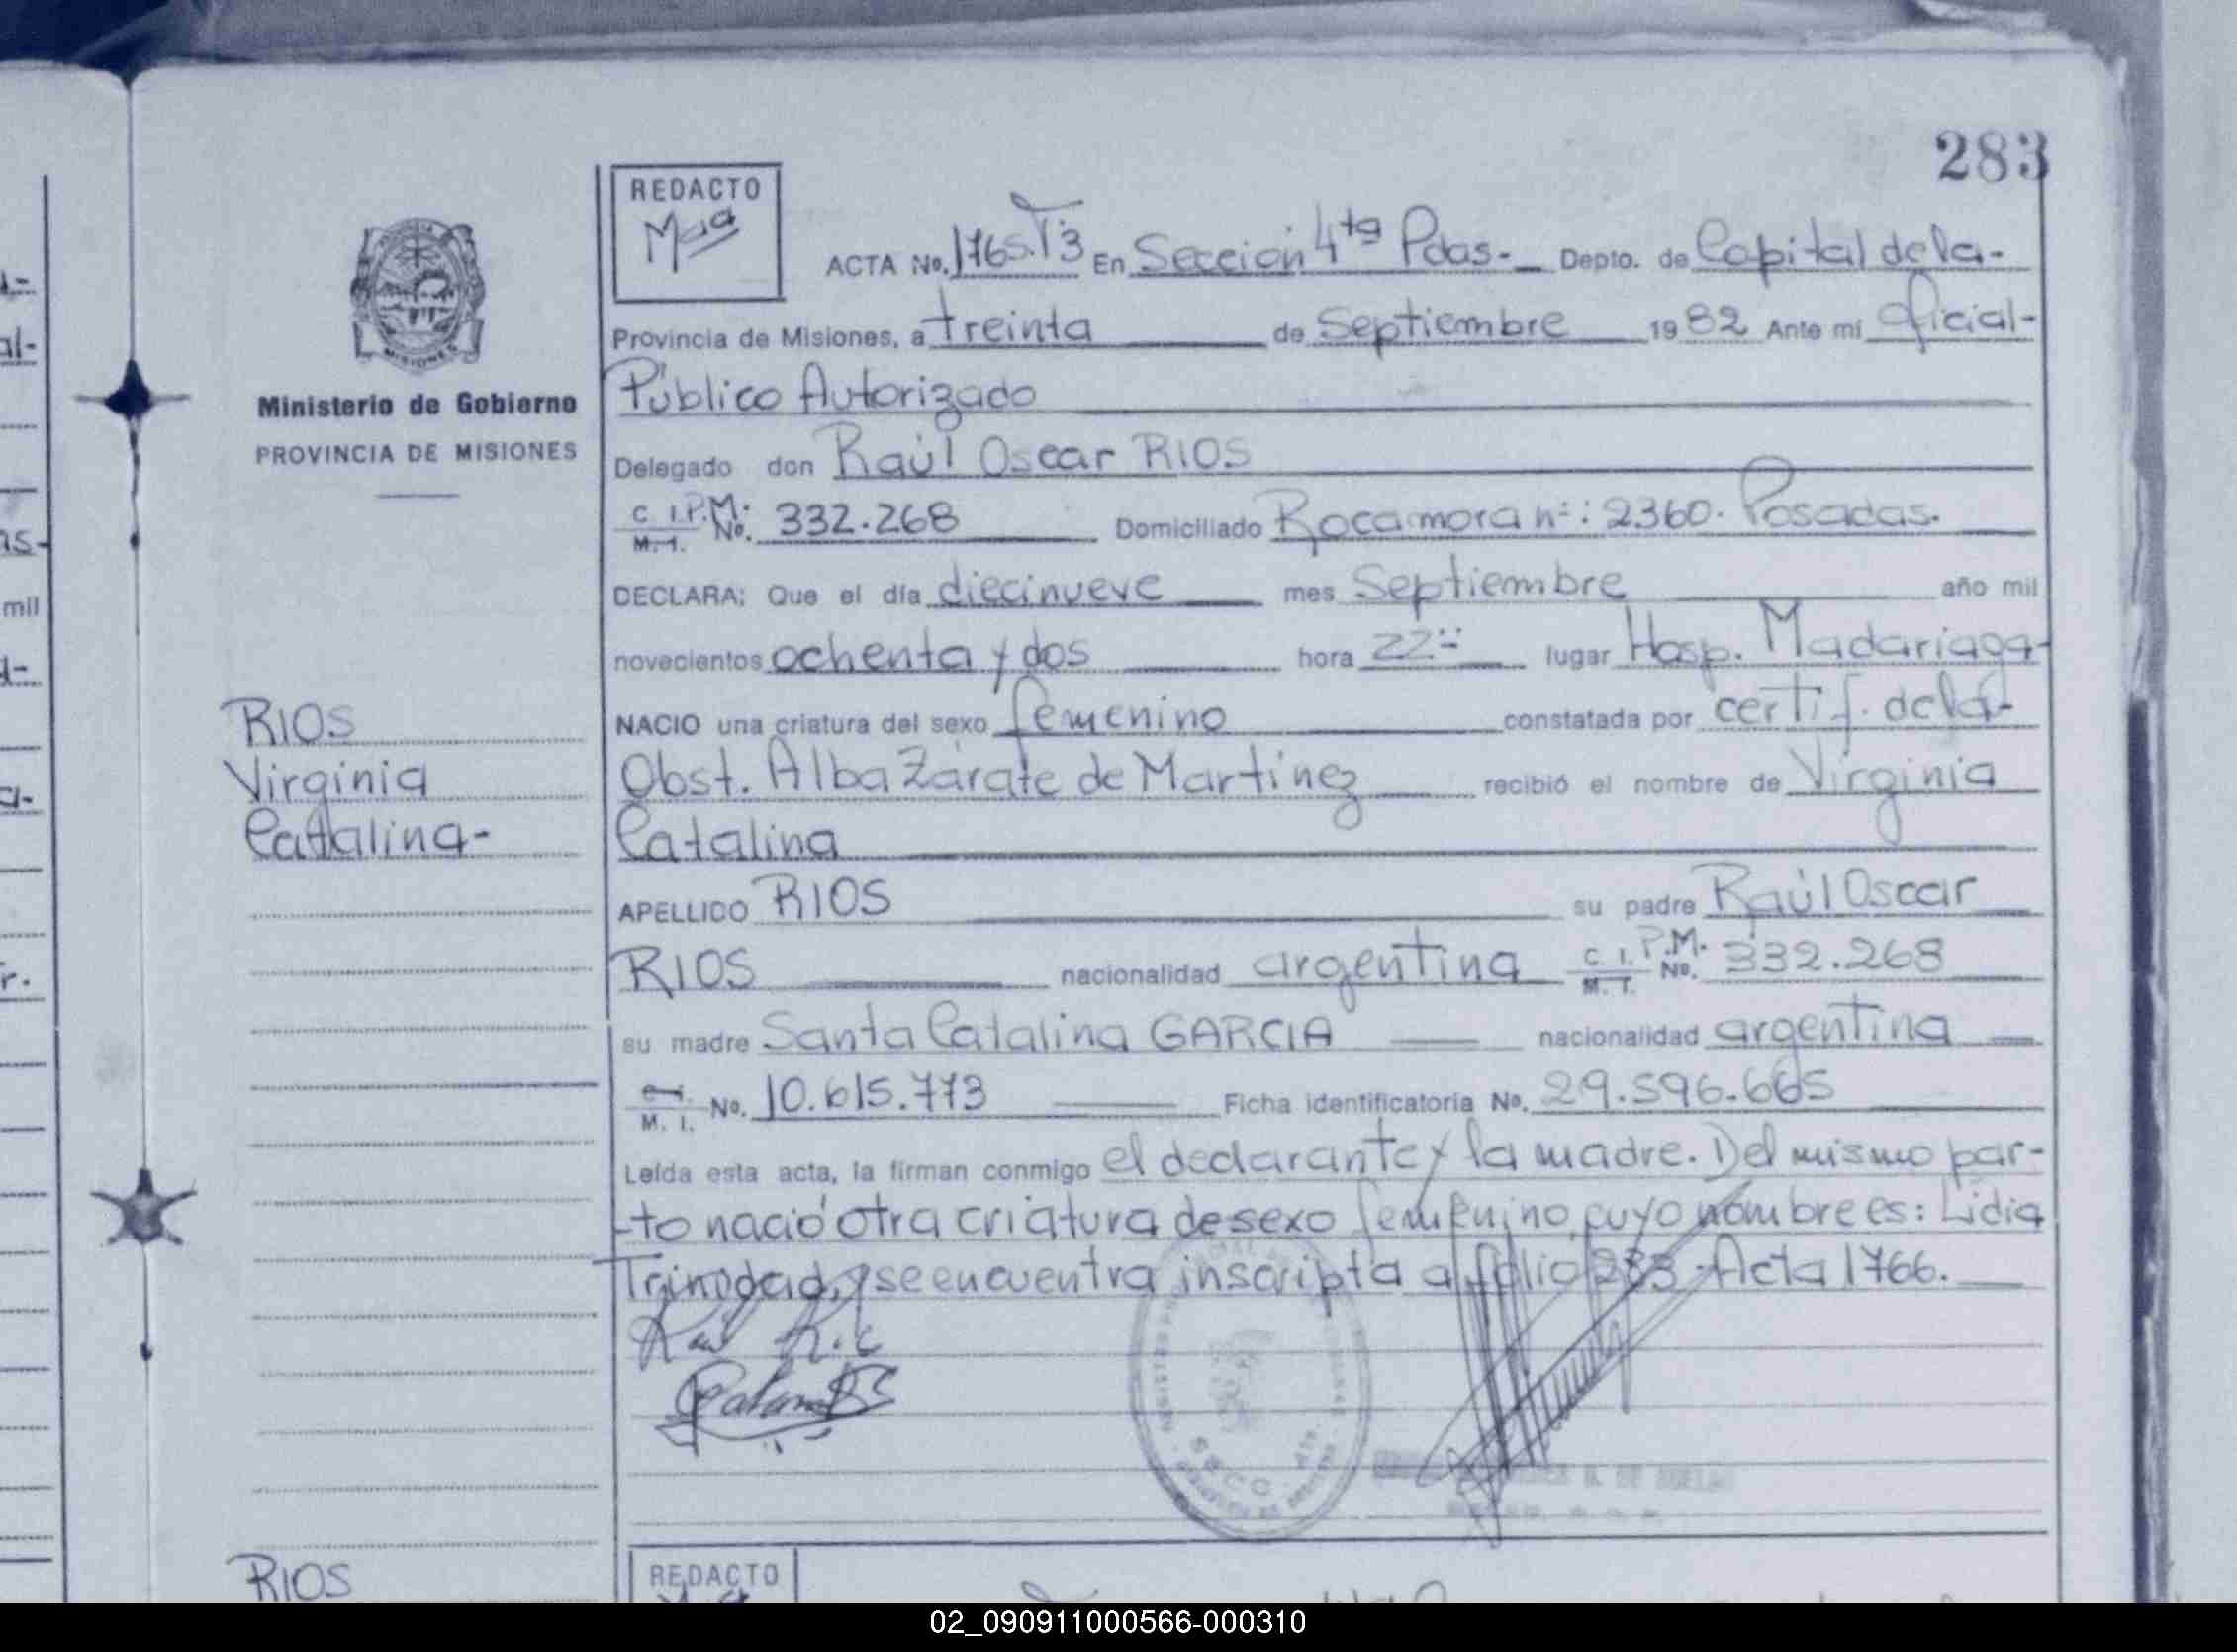 283
REDACTO
ACTA No. 1765.T3 En Sección 4ta Pdas.- Depto. de Capital de la-
Provincia de Misiones, a treinta de Septiembre 1982 Ante mí Oficial-
Público Autorizado
Delegado don Raúl Oscar RIOS
C. I.P.M: M.I. No. 332.268 Domiciliado Rocamora nº: 2360. Posadas.
DECLARA: Que el día diecinueve mes Septiembre año mil
novecientos ochenta y dos hora 22:- lugar Hosp. Madariaga-
NACIO una criatura del sexo femenino constatada por certif. de la-
Obst. Alba Zárate de Martínez recibió el nombre de Virginia
Catalina
APELLIDO RIOS su padre Raúl Oscar
RIOS nacionalidad argentina C. I. P.M. M. I. No. 332.268
su madre Santa Catalina GARCIA nacionalidad argentina
M. I. No. 10.615.773 Ficha identificatoria No. 29.596.665
Leída esta acta, la firman conmigo el declarante y la madre. Del mismo par-
-to nació otra criatura de sexo femenino cuyo nombre es: Lidia
Trinidad, y se encuentra inscripta a folio 283 - Acta 1766.
MISIONES
Ministerio de Gobierno
PROVINCIA DE MISIONES
RIOS
Virginia
Catalina-
RIOS
REDACTO
02_090911000566-000310